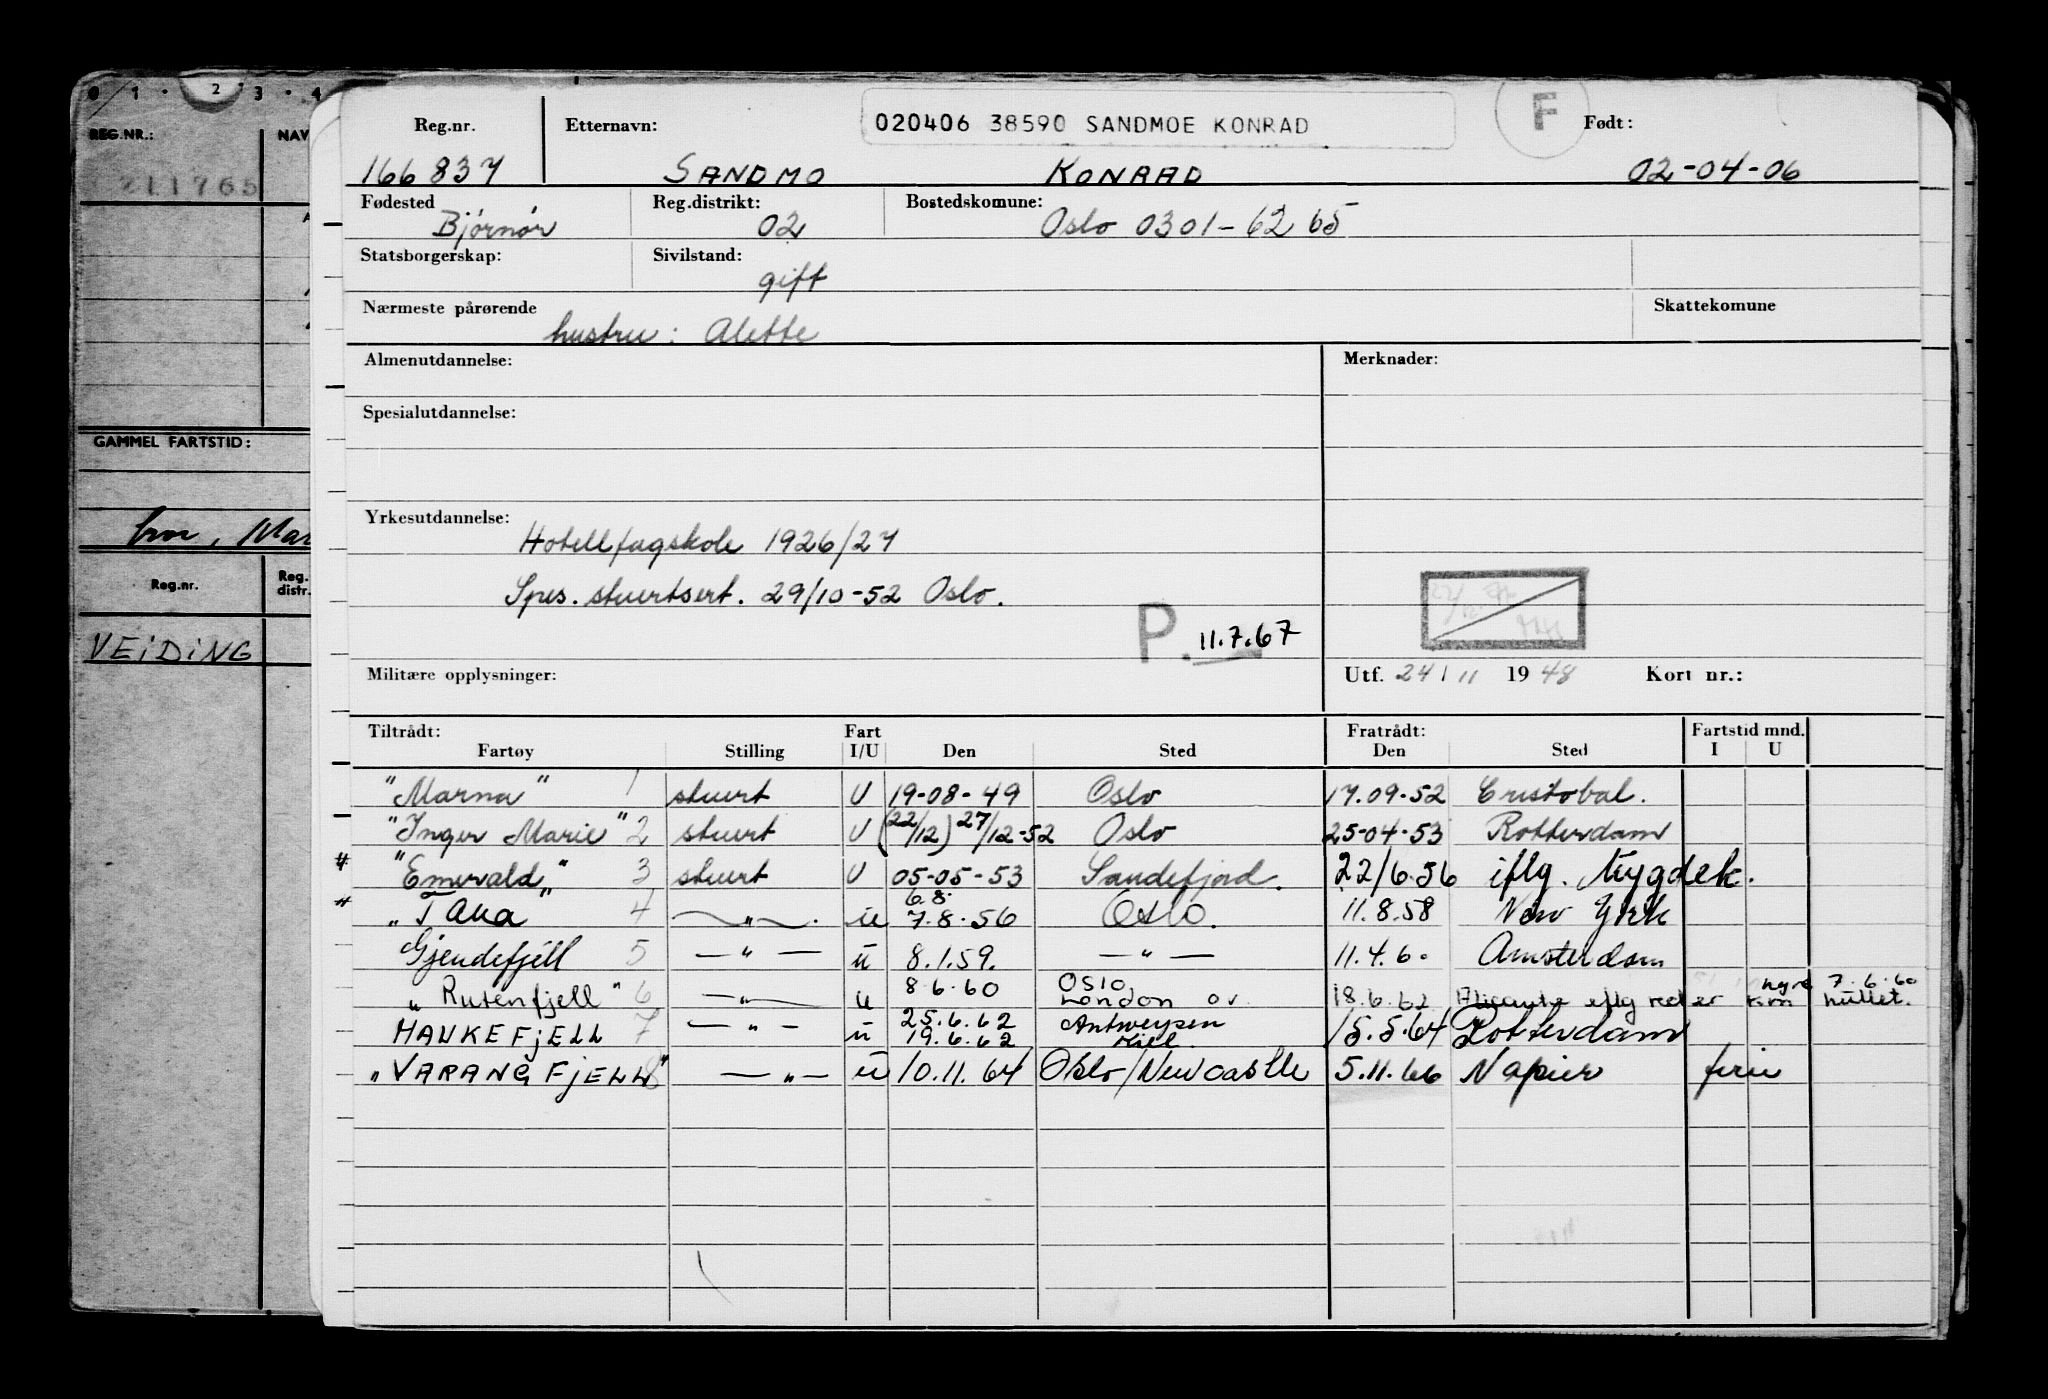 0 1 · 2 3 · 4
REG.NR.: NAV
211765
GAMMEL FARTSTID:
Reg.nr. Reg. distr.
VEIDING
Reg.nr. Etternavn: 020406 38590 SANDMOE KONRAD F Født:
166837 SANDMO KONRAD 02-04-06
Fødested Reg.distrikt: Bostedskomune:
Bjørnør 02 Oslo 0301-62 65
Statsborgerskap: Sivilstand:
gift
Nærmeste pårørende Skattekomune
hustru: Alette
Almenutdannelse: Merknader:
Spesialutdannelse:
Yrkesutdannelse:
Hotellfagskole 1926/27
Spes. stuertsert. 29/10-52 Oslo.
P. 11.7.67
Militære opplysninger: Utf. 24/11 1948 Kort nr.:
Tiltrådt: Fart Fratrådt: Fartstid mnd.
Fartøy Stilling I/U Den Sted Den Sted I U
"Marna" 1 stuert U 19-08-49 Oslo 17.09.52 Cristobal.
"Inger Marie" 2 stuert U (22/12) 27/12-52 Oslo 25-04-53 Rotterdam
"Emerald" 3 stuert U 05-05-53 Sandefjord. 22/6.56 iflg. Mygdek.
6.8.
"Tana" 4 — " — u 7.8.56 Oslo. 11.8.58 New York
Gjendefjell 5 — " — u 8.1.59. — " — 11.4.60 Amsterdam
8.6.60 OSLO nyre 7.6.60
"Rutenfjell" 6 — " — u London ov. 18.6.62 Alicante eflg rederi kem nullet.
25.6.62 Antwerpen
HAUKEFJELL 7 — " — u 19.6.62 Kiel. 15.5.64 Rotterdam
"VARANGFJELL" 8 — " — u 10.11.64 Oslo/Newcastle 5.11.66 Napier ferie